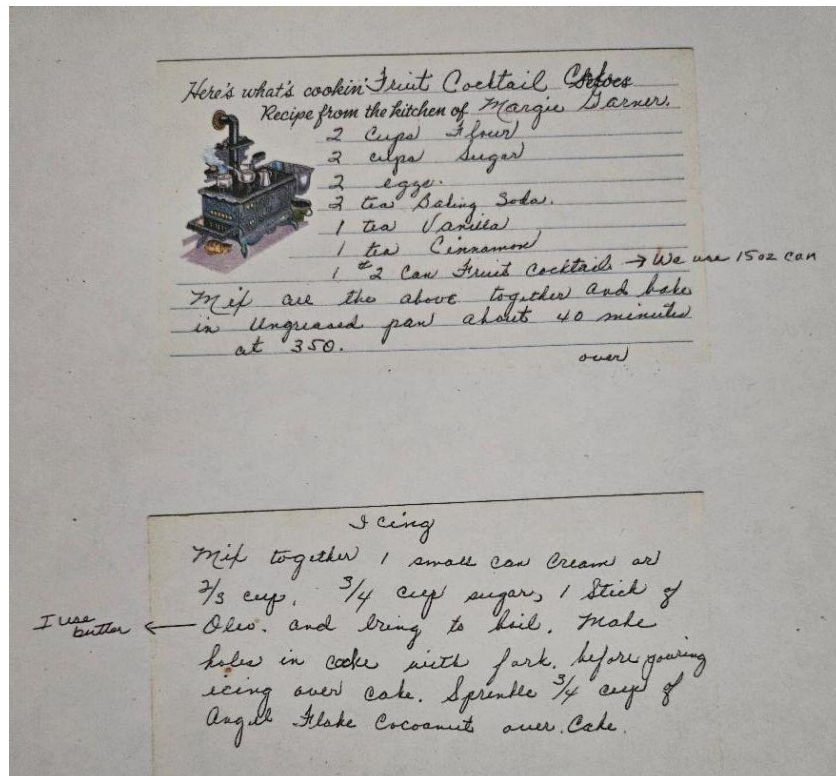 Here's what's cookin' Fruit Cocktail Cake
Recipe from the kitchen of Margie Garner.
2 Cups Flour
2 cups Sugar
2 eggs.
2 tea Baking Soda.
1 tea Vanilla
1 tea Cinnamon
1 #2 Can Fruit Cocktail → We use 15oz can
Mix all the above together and bake
in Ungreased pan about 40 minutes
at 350.
over
Icing
Mix together 1 small can Cream or
2/3 cup, 3/4 cup sugar, 1 Stick of
I use
butter ← Oleo. and bring to boil. Make
holes in cake with fork, before pouring
icing over cake. Sprinkle 3/4 cup of
Angel Flake Cocoanut over Cake.